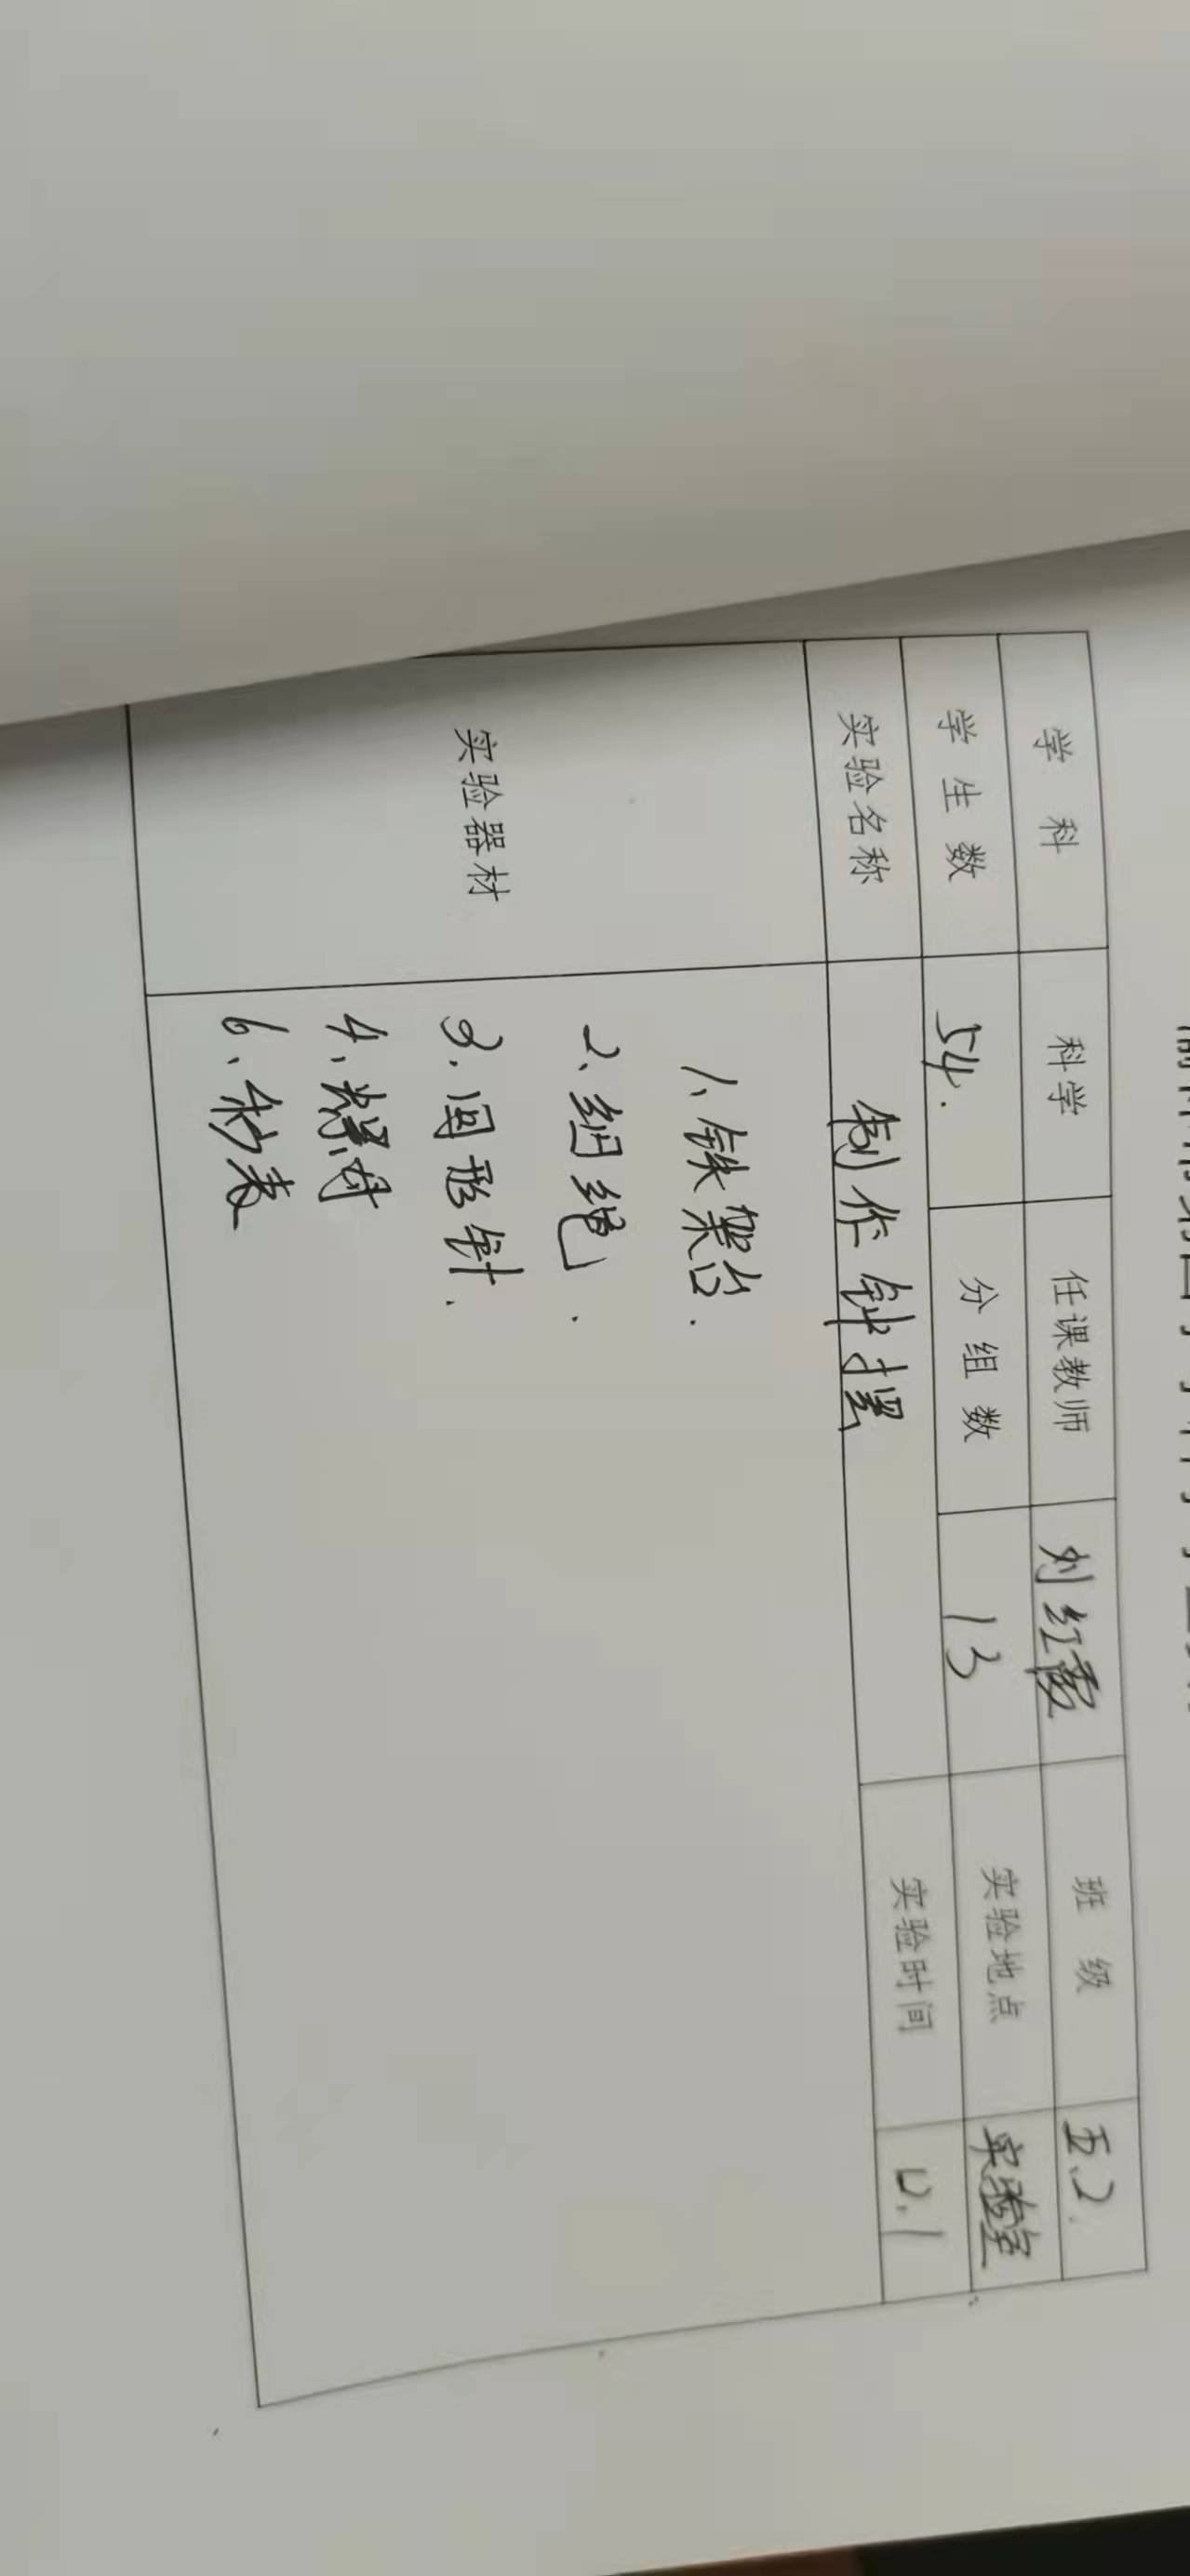 学科 科学 任课教师 刘红霞 班级 五.2.
学生数 54. 分组数 13 实验地点 实验室
实验名称 制作钟摆 实验时间
实验器材
1、铁架台.
2、细绳.
3.回形针.
4.螺母
6、秒表